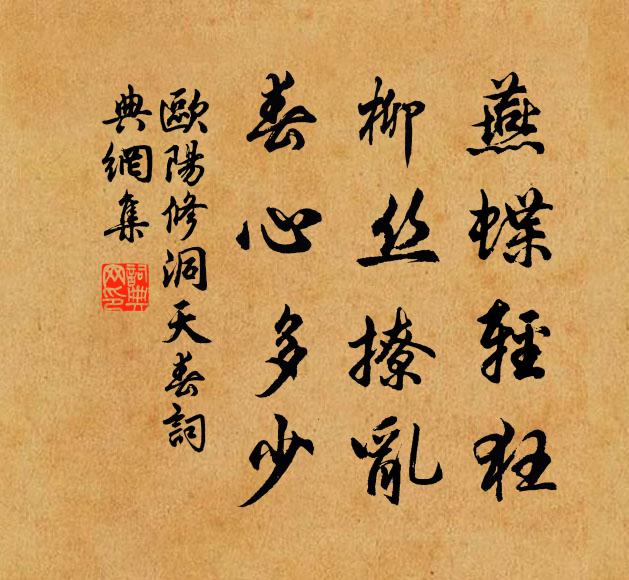 燕蝶輕狂
柳丝撩亂
春心多少
歐陽修洞天春詞
典網集
詞典网印